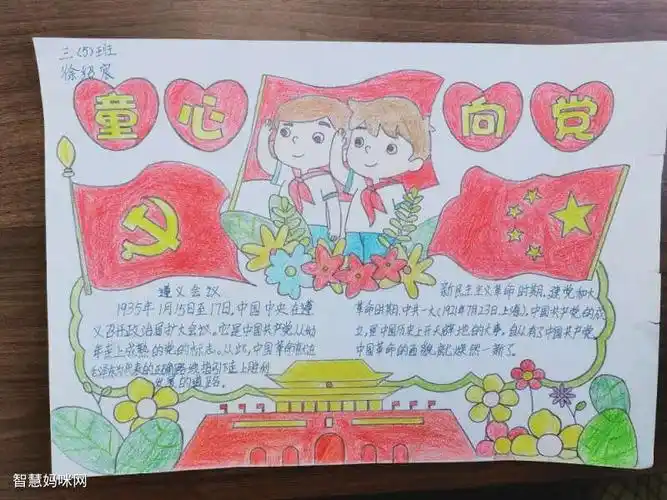 三(5)班
徐绍宸
童心向党
遵义会议
1935年1月15日至17日,中国中央在遵
义召开政治局扩大会议。它是中国共产党从幼
年走上成熟的党的标志。从此,中国革命有
毛泽东为代表的正确路线指引下走上胜利
发展的道路。
新民主主义革命时期,建党和大
革命时期,中共一大(1921年7月23日上海),中国共产党的成
立,是中国历史上开天辟地的大事,自从有了中国共产党,
中国革命的面貌就焕然一新了。
智慧妈咪网